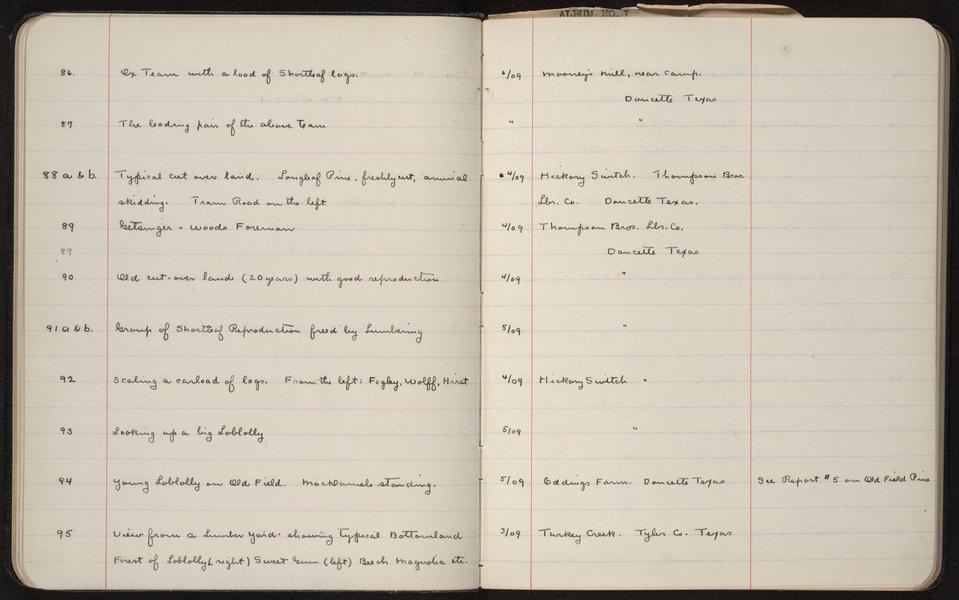 ALBUM NO. 1
86. Ox Team with a load of Shortleaf logs. 4/09 Mooney's Mill, near Camp.
Doucette Texas
87 The leading pair of the above team " "
88 a & b. Typical cut over land. Longleaf Pine, freshly cut, animal 4/09 Hickory Switch. Thompson Bros.
skidding. Tram Road on the left Lbr. Co. Doucette Texas.
89 Getsinger - Woods Foreman 4/09 Thompson Bros. Lbr. Co.
89 Doucette Texas
90 Old cut-over land (20 years) with good reproduction 4/09 "
91 a & b. Group of Shortleaf Reproduction freed by Lumbering 5/09 "
92 Scaling a carload of logs. From the left: Fegley, Wolff, Hirst 4/09 Hickory Switch "
93 Looking up a big Loblolly 5/09 "
94 Young Loblolly on Old Field. MacDaniels standing. 5/09 Eddings Farm. Doucette Texas See Report #5 on Old Field Pine
95 View from a Lumber Yard - showing typical Bottomland 3/09 Turkey Creek. Tyler Co. Texas
Forest of Loblolly (right) Sweet Gum (left) Beech Magnolia etc.